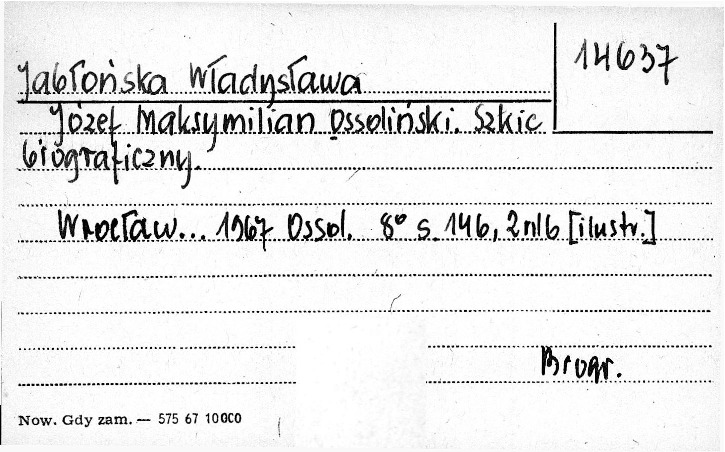 14637
Jabłońska Władysława
Józef Maksymilian Ossoliński. Szkic
biograficzny.
Wrocław... 1967 Ossol. 8° s. 146, 2nlb [ilustr.]
Biogr.
Now. Gdy zam. — 575 67 10000